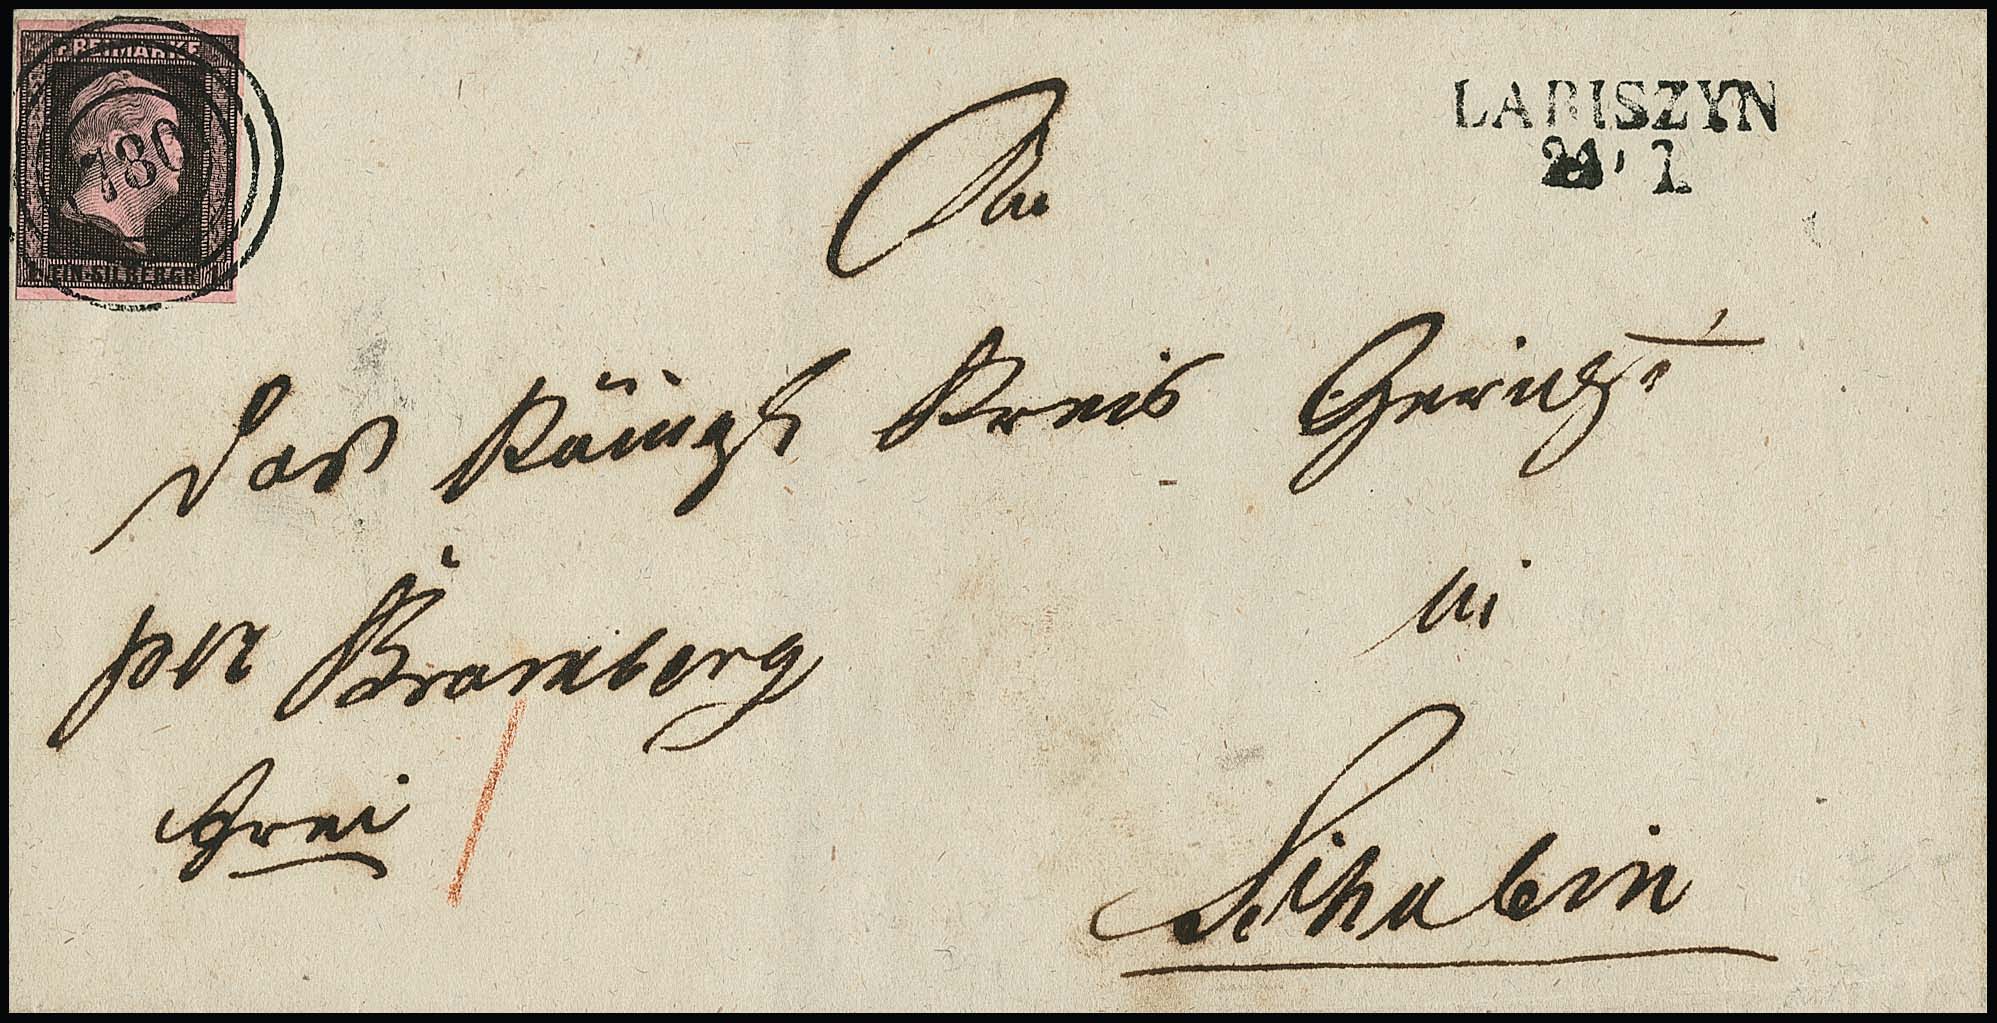 FREIMARKE
780
1 EIN SILBERGR. 1
LABISZYN
An
das Königl Kreis Gericht
per Bromberg
in
frei
Schubin